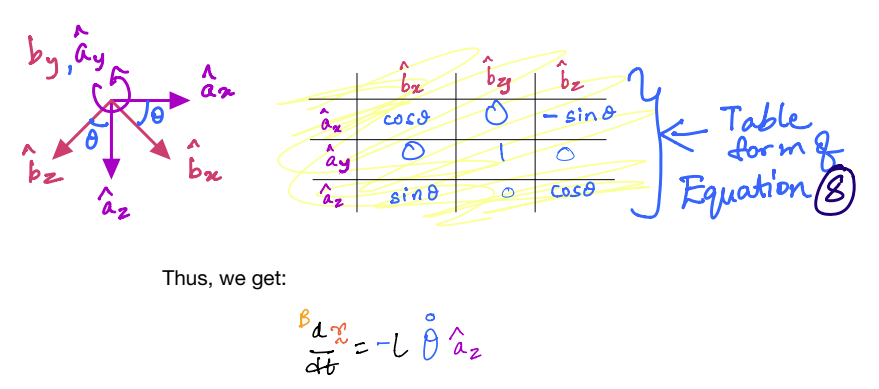 b_y, â_y
â_x
θ
θ
b̂_z
b̂_x
â_z
b̂_x b̂_y b̂_z
â_x cosθ 0 -sinθ
â_y 0 1 0
â_z sinθ 0 cosθ
Table
form of
Equation 8
Thus, we get:
ᴮdr̰/dt = -L θ̊ â_z